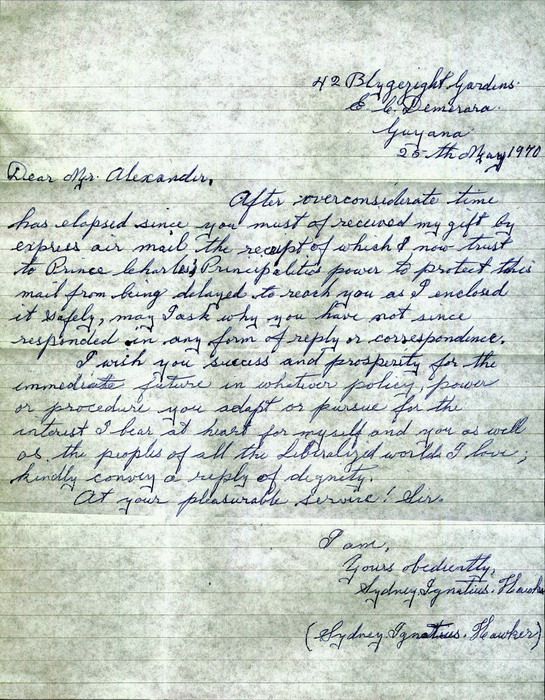 42 Blygezight Gardens.
E. C. Demerara.
Guyana.
25th May 1970
Dear Mr. Alexander,
After overconsiderate time
has elapsed since you must of received my gift by
express air mail the receipt of which I now trust
to Prince Charles' Principalitis power to protect this
mail from being delayed to reach you as I enclosed
it safely, may I ask why you have not since
responded in any form of reply or correspondence.
I wish you success and prosperity for the
immediate future in whatever policy, power
or procedure you adapt or pursue for the
interest I bear at heart for myself and you as well
as the peoples of all the Liberalized world I love;
kindly convey a reply of dignity.
At your pleasurable service! Sir.
I am,
Yours obediently,
Sydney Ignatius. Hawker
(Sydney Ignatius. Hawker)